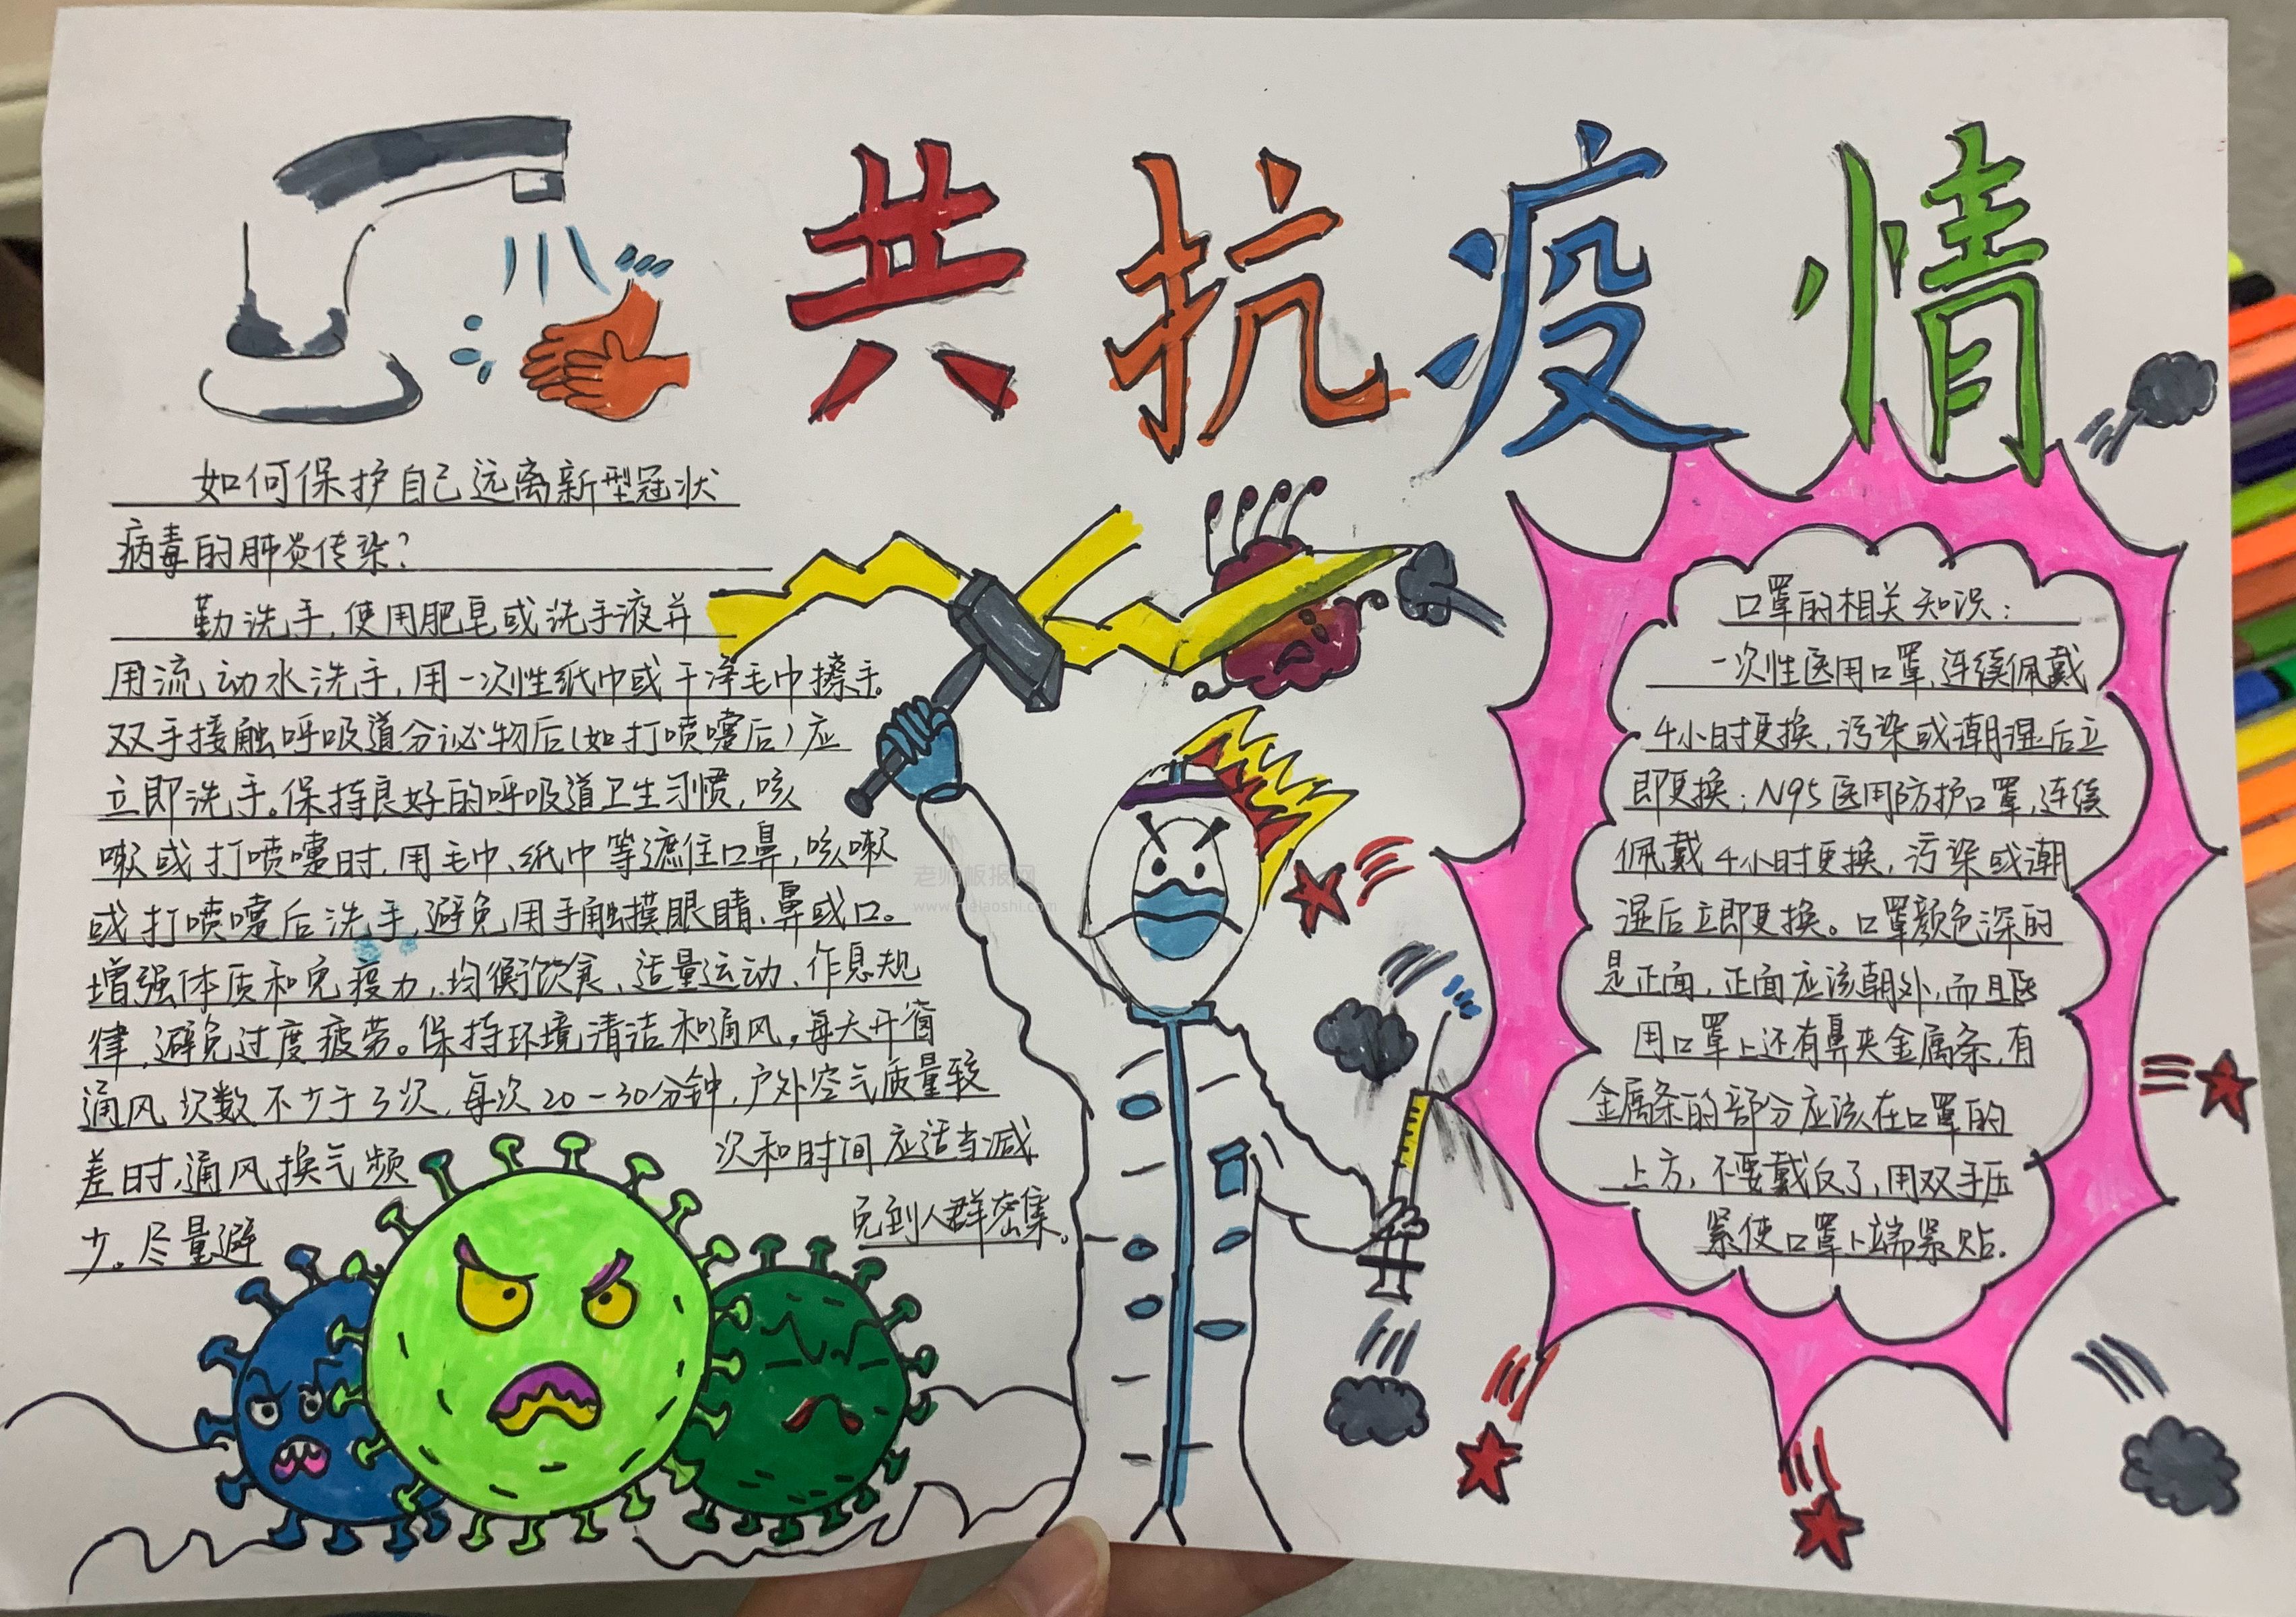 共抗疫情
如何保护自己远离新型冠状
病毒的肺炎传染？
勤洗手，使用肥皂或洗手液并
用流动水洗手，用一次性纸巾或干净毛巾擦手。
双手接触呼吸道分泌物后（如打喷嚏后）应
立即洗手。保持良好的呼吸道卫生习惯，咳
嗽或打喷嚏时，用毛巾、纸巾等遮住口鼻，咳嗽
或打喷嚏后洗手，避免用手触摸眼睛、鼻或口。
增强体质和免疫力，均衡饮食、适量运动、作息规
律，避免过度疲劳。保持环境清洁和通风，每天开窗
通风次数不少于3次，每次20－30分钟，户外空气质量较
差时，通风换气频
次和时间应适当减
少。尽量避
免到人群密集。
口罩的相关知识：
一次性医用口罩，连续佩戴
4小时更换，污染或潮湿后立
即更换；N95医用防护口罩，连续
佩戴4小时更换，污染或潮
湿后立即更换。口罩颜色深的
是正面，正面应该朝外，而且医
用口罩上还有鼻夹金属条，有
金属条的部分应该在口罩的
上方，不要戴反了，用双手压
紧使口罩上端紧贴。
老师板报网